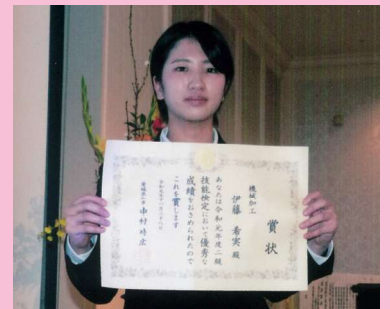 賞状
機械加工
伊藤 希実 殿
あなたは令和元年度二級
技能検定において優秀な
成績をおさめられたので
これを賞します
愛媛県知事 中村時広